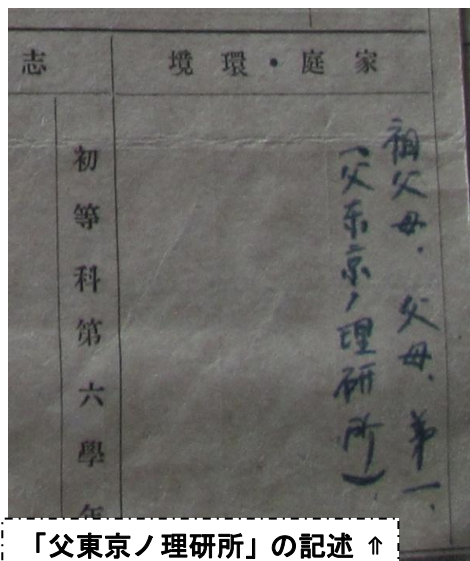 家庭・環境
祖父母、父母、弟一、
(父東京ノ理研所)
志
初等科第六學年
「父東京ノ理研所」の記述 ⇑